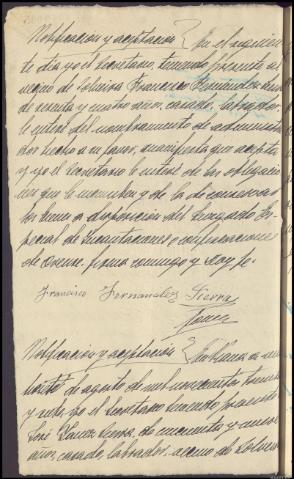 Notificacion y aceptacion } En el siguien
te dia, yo el Secretario, teniendo presente al
vecino de Francisco Fernandez Sierra
de sesenta y cuatro años, casado, labrador,
le enteré del nombramiento de administra
dor hecho a su favor, manifiesta que acepta
y yo el Secretario le enteré de las obligacio
nes que le incumben y de la de conservar
los bienes a disposición del Juzgado Es-
pecial de Incautaciones o confiscaciones
de Orense, firma conmigo y doy fe.
Francisco Fernandez Sierra
Notificacion y aceptación } En Blancos a
de agosto de mil novecientos treinta
y siete, yo el Secretario teniendo presente
José de cincuenta y nueve
años, casado, labrador, vecino de